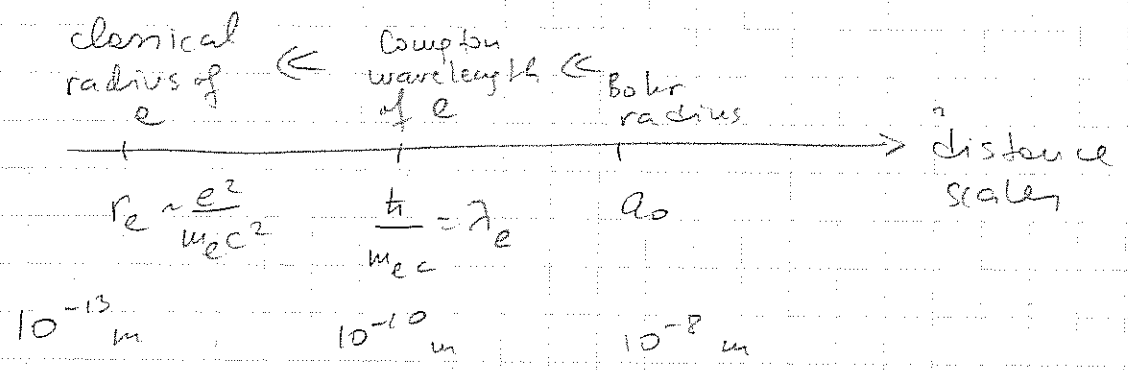 classical
radius of
e
≪
Compton
wavelength
of e
≪
Bohr
radius
distance
scales
r_e ~ e²/(m_e c²)
ħ/(m_e c) = λ_e
a₀
10⁻¹³ m
10⁻¹⁰ m
10⁻⁸ m